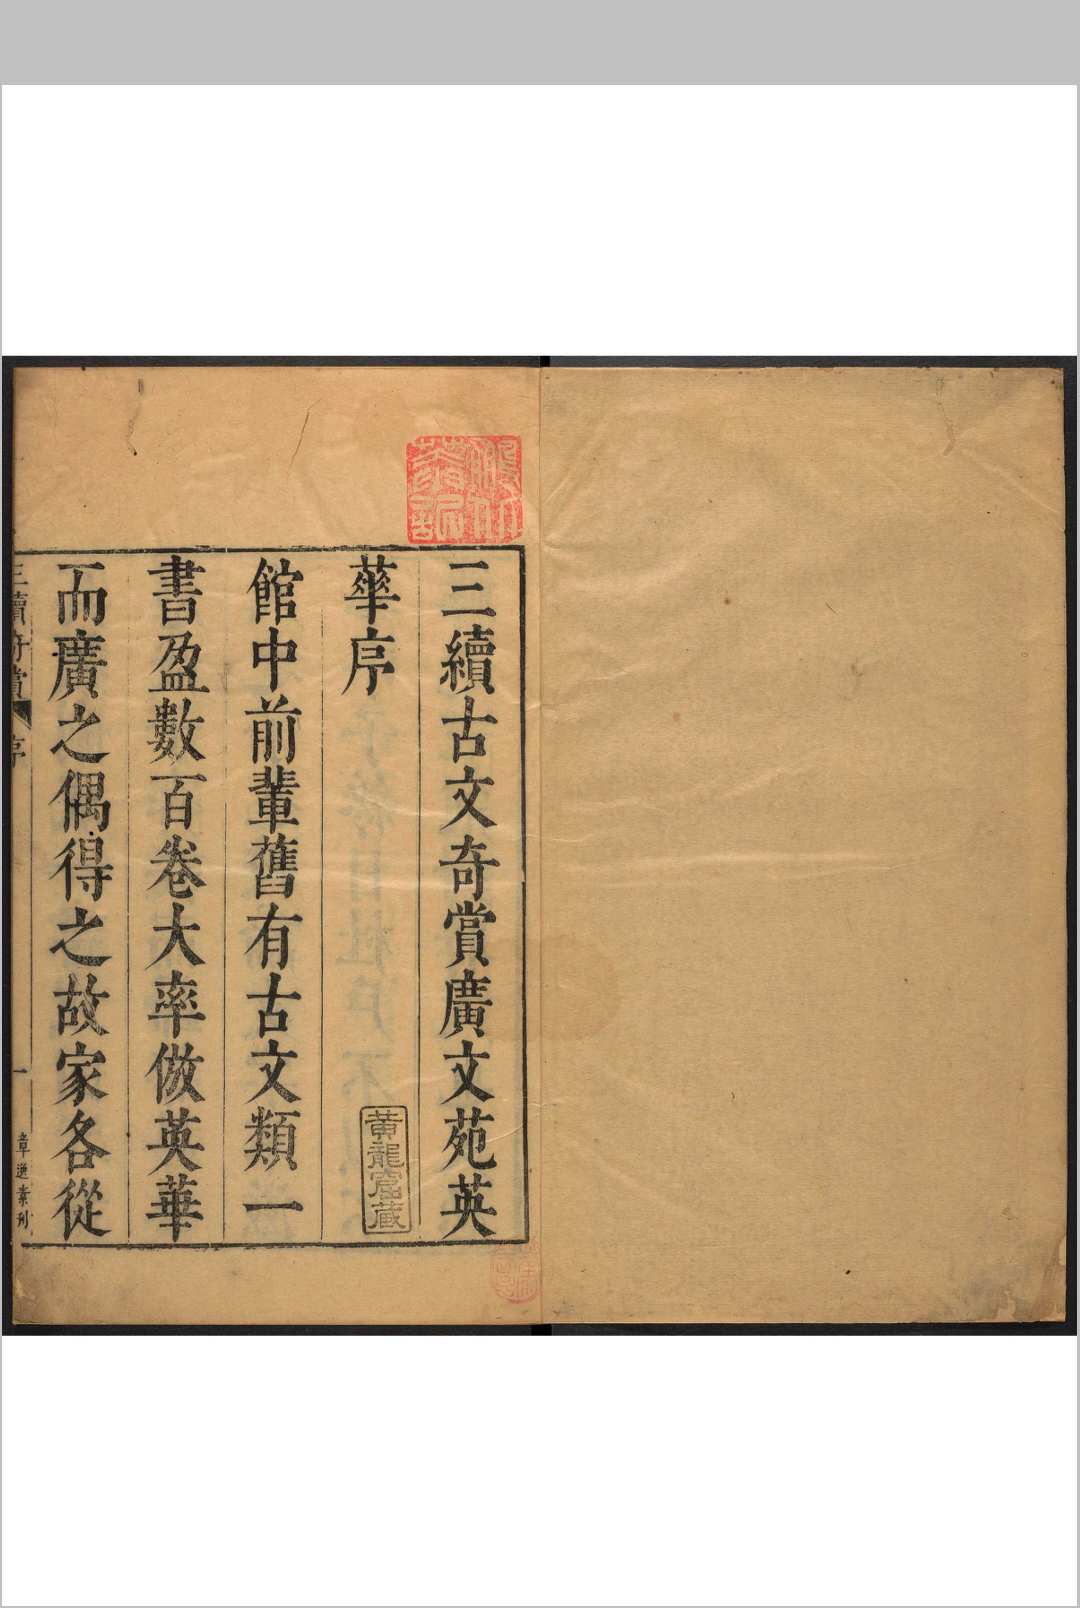 三續古文奇賞廣文苑英
華序
館中前輩舊有古文類一
書盈數百卷大率倣英華
而廣之偶得之故家各從
三續奇賞
序
一
章
刋
黄龍窟藏